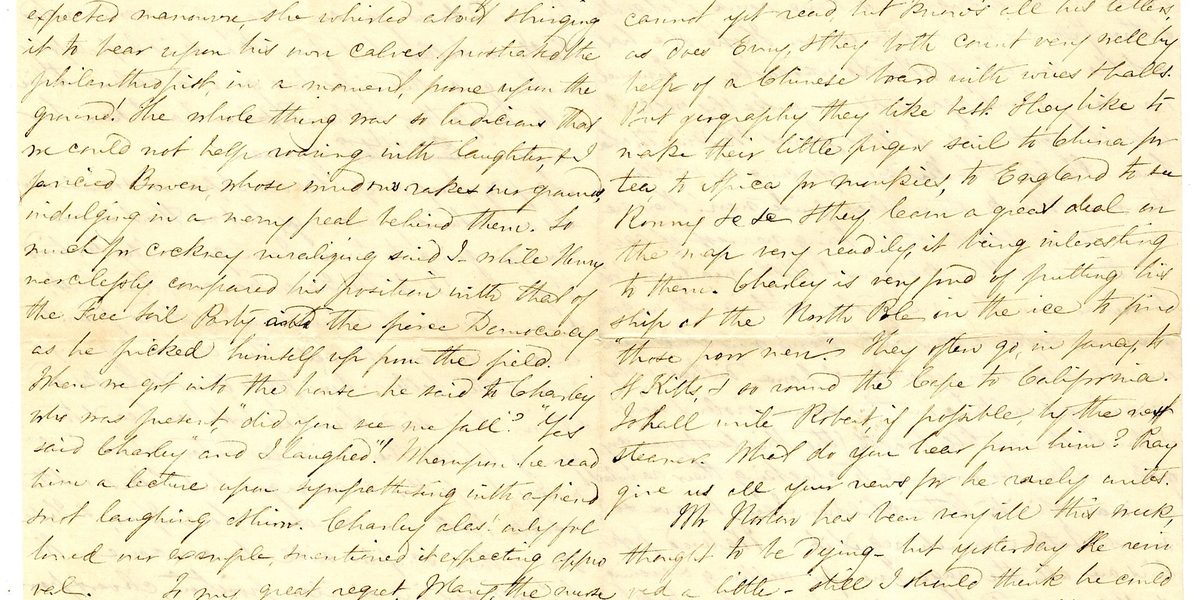 expected manouvre, she whirled about & bringing
it to bear upon his own calves prostrated the
philanthropist in a moment, prone upon the
ground! The whole thing was so ludicrous that
we could not help roaring with laughter, & I
fancied Bowen, whose mind now rakes our grounds,
indulging in a merry peal behind them. So
much for cockney ruralizing said I - while Henry
mercilessly compared his position with that of
the Free Soil Party and the fierce Democracy
as he picked himself up from the field.
When we got into the house he said to Charley
who was present, "did you see me fall"? "Yes
said Charley" and I laughed"! Whereupon he read
him a lecture upon sympathising with a friend
& not laughing at him. Charley alas! only fol
lowed our example, & mentioned it expecting appro
val. To my great regret, Mary, the nurse
cannot yet read, but knows all his letters,
as does Erny, & they both count very well by
help of a Chinese board with wires & balls.
But geography they like best. They like to
make their little fingers sail to China for
tea, to Africa for monkies, to England to see
Ronny &c &c & they learn a great deal on
the map very readily, it being interesting
to them. Charley is very fond of putting his
ship at the North Pole in the ice to find
"those poor men". They often go, in fancy, to
St Kitts, & so round the Cape to California.
I shall write Robert, if possible, by the next
steamer. What do you hear from him? Pray
give us all your news for he rarely writes.
Mr Norton has been very ill this week,
thought to be dying - but yesterday he reviv
ved a little - still I should think he could